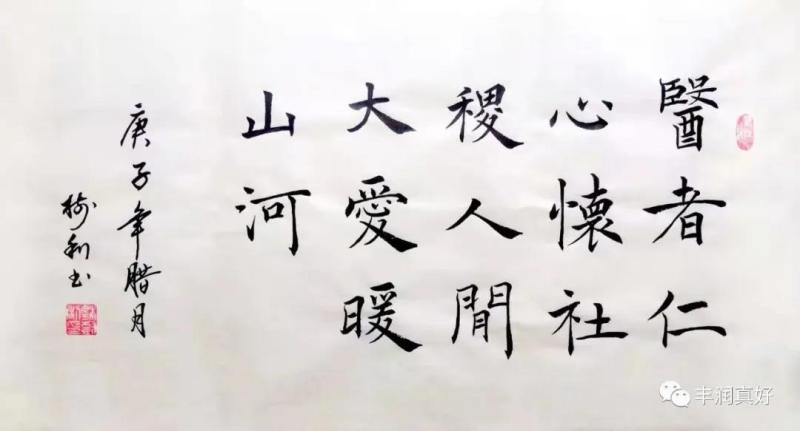 醫者仁
心懷社
稷人間
大愛暖
山河
庚子年腊月
利书
丰润真好